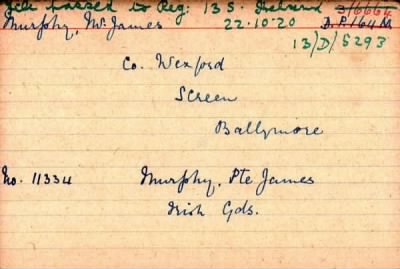 passed to Reg: 13 S. Ireland 3/6664
Murphy, Mr. James 22.10.20 D.P. 164
13/D/5293
Co. Wexford
Screen
Ballymore
No. 11334 Murphy, Pte James
Irish Gds.